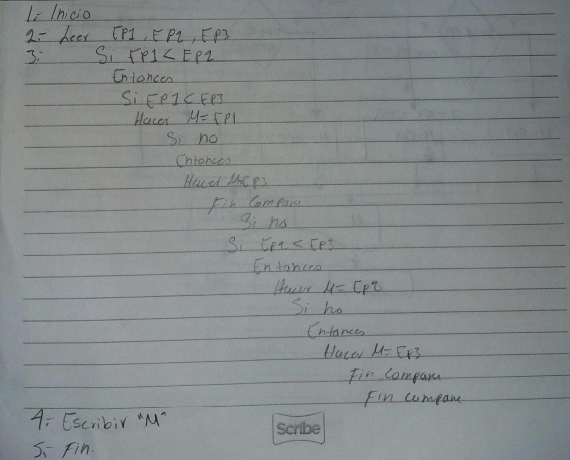 1.- Inicio
2.- Leer EP1, EP2, EP3
3.- Si EP1 < EP2
Entonces
Si EP1 < EP3
Hacer M = EP1
Si no
Entonces
Hacer M = EP3
Fin compara
Si no
Si EP2 < EP3
Entonces
Hacer M = EP2
Si no
Entonces
Hacer M = EP3
Fin compara
Fin compara
4.- Escribir "M"
5.- Fin
Scribe